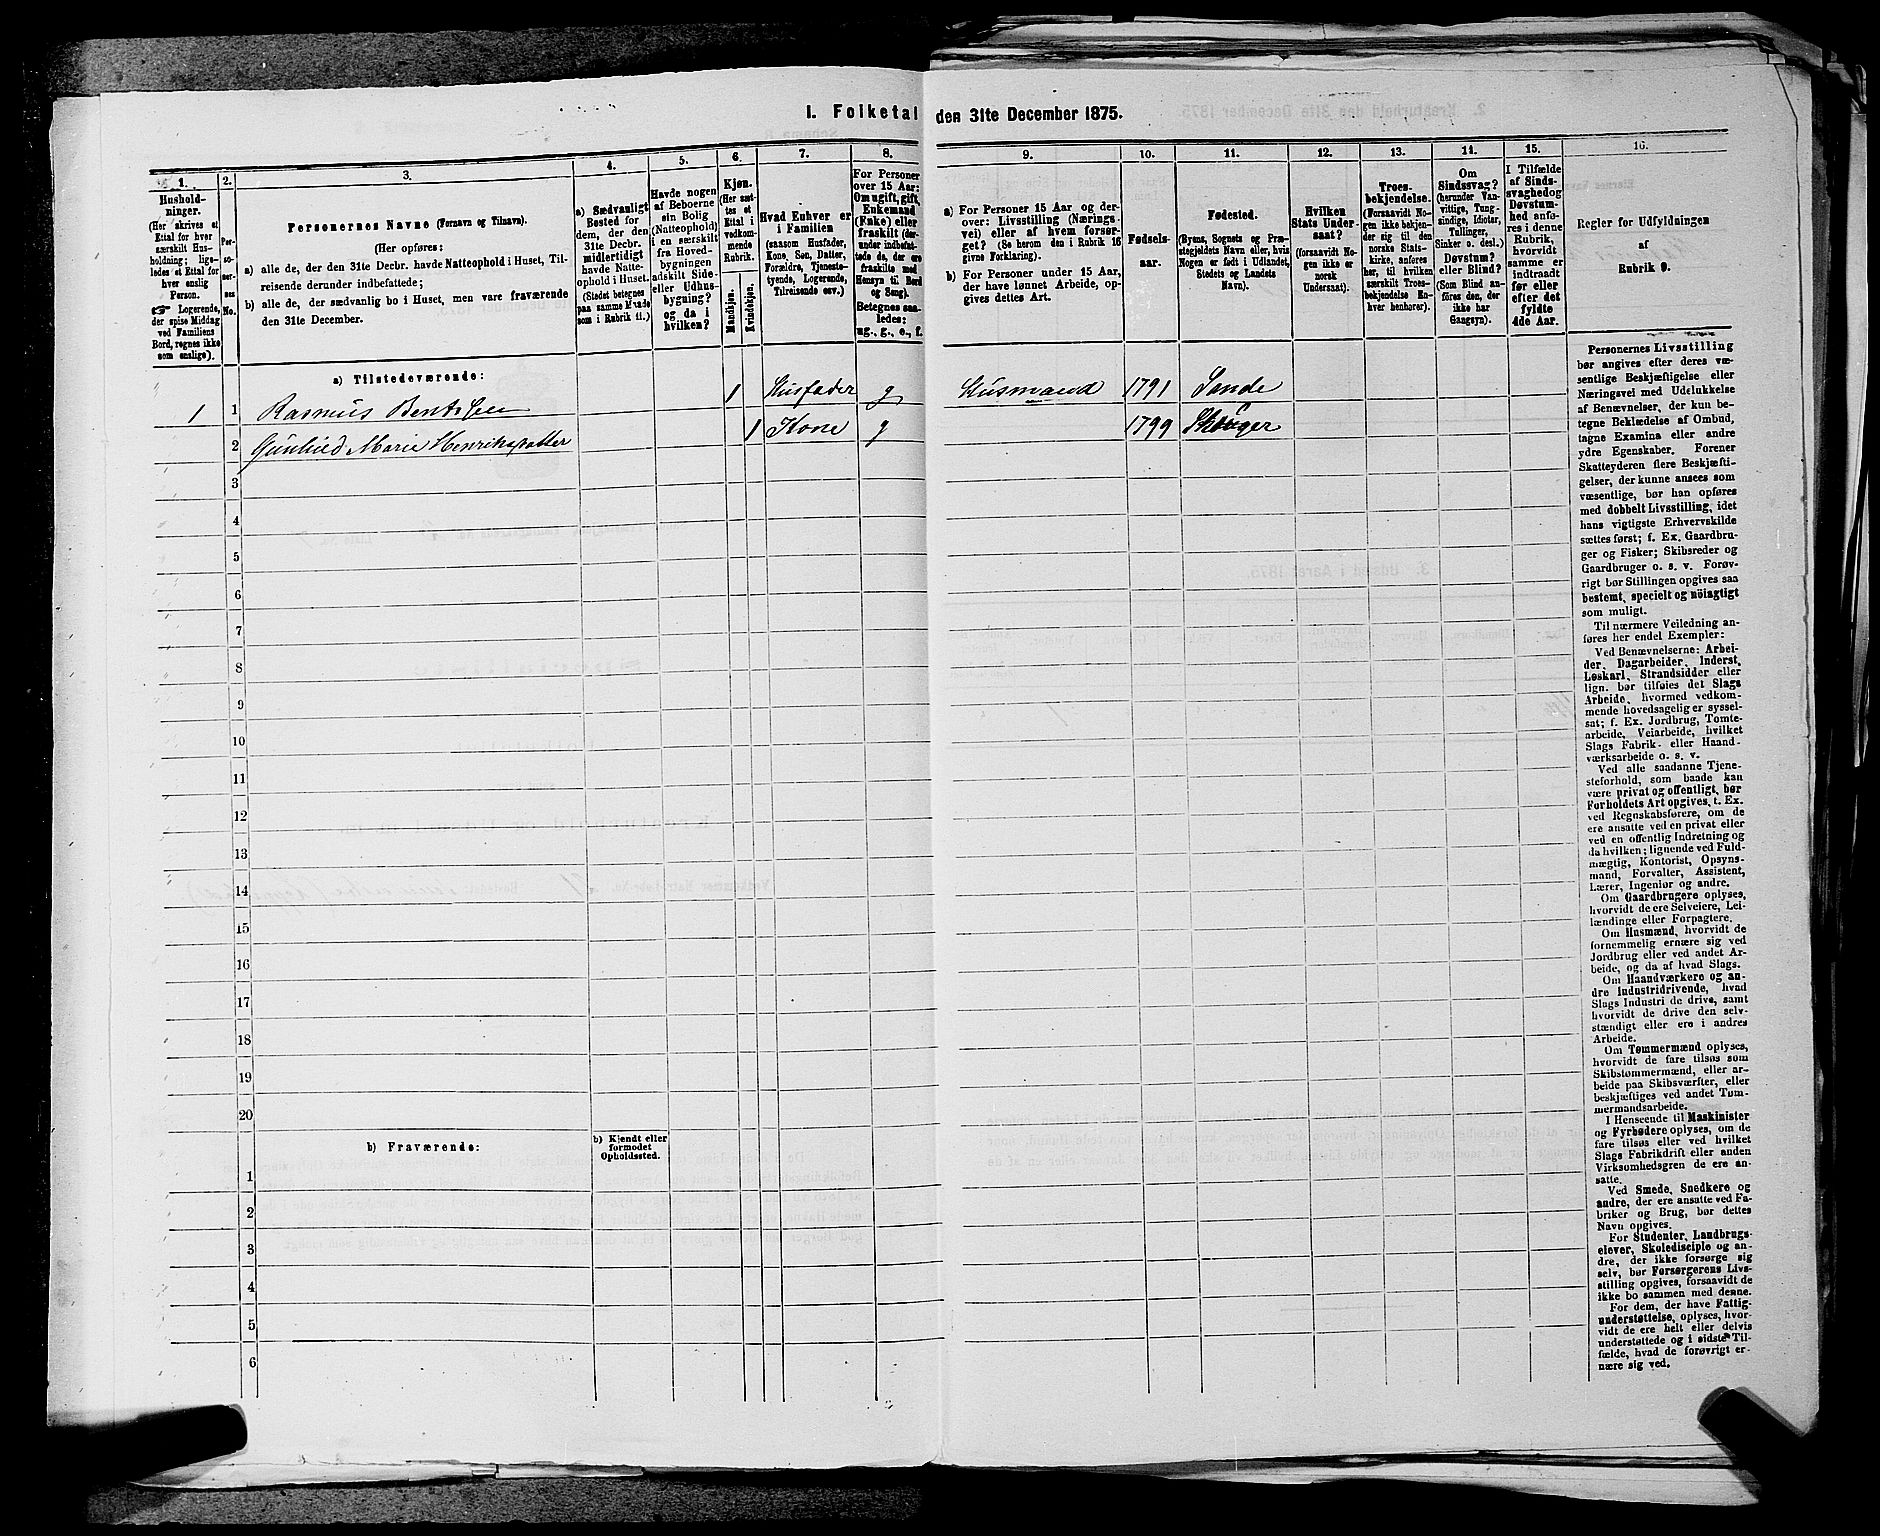 I. Folketal den 31te December 1875.
1.
Hushold-
ninger.
(Her skrives et
Ettal for hver
særskilt Hus-
holdning; lige-
ledes et Ettal for
hver enslig
Person.
☞ Logerende,
der spise Middag
ved Familiens
Bord, regnes ikke
som enslige).
2.
Per-
so-
ner-
nes
No.
3.
Personernes Navne (Fornavn og Tilnavn).
(Her opføres:
a) alle de, der den 31te Decbr. havde Natteophold i Huset, Til-
reisende derunder indbefattede;
b) alle de, der sædvanlig bo i Huset, men vare fraværende
den 31te December.
4.
a) Sædvanligt
Bosted for
dem, der den
31te Decbr.
midlertidigt
havde Natte-
ophold i Huset.
(Stedet betegnes
paa samme Maade
som i Rubrik 11.)
5.
Havde nogen
af Beboerne
sin Bolig
(Natteophold)
i en særskilt
fra Hoved-
bygningen
adskilt Side-
eller Udhus-
bygning?
og da i
hvilken?
6.
Kjøn.
(Her sæt-
tes et
Ettal i
vedkom-
mende
Rubrik.
Mandkjøn.
Kvindekjøn.
7.
Hvad Enhver er
i Familien
(saasom Husfader,
Kone, Søn, Datter,
Forældre, Tjeneste-
tyende, Logerende,
Tilreisende osv.)
8.
For Personer
over 15 Aar:
Om ugift, gift,
Enkemand
(Enke) eller
fraskilt (der-
under indbefat-
tede de, der ere
fraskilte med
Hensyn til Bord
og Seng).
Betegnes saa-
ledes:
ug., g., e., f.
9.
a) For Personer 15 Aar og der-
over: Livsstilling (Nærings-
vei) eller af hvem forsør-
get? (Se herom den i Rubrik 16
givne Forklaring).
b) For Personer under 15 Aar,
der have lønnet Arbeide, op-
gives dettes Art.
10.
Fødsels-
aar.
11.
Fødested.
(Byens, Sognets og Præ-
stegjeldets Navn eller, hvis
Nogen er født i Udlandet,
Stedets og Landets
Navn).
12.
Hvilken
Stats Under-
saat?
(forsaavidt No-
gen ikke er
norsk
Undersaat).
13.
Troes-
bekjendelse.
(Forsaavidt No-
gen ikke bekjen-
der sig til den
norske Stats-
kirke, anføres
her, til hvilken
særskilt Troes-
bekjendelse En-
hver henhører).
14.
Om
Sindssvag?
(herunder Van-
vittige, Tung-
sindige, Idioter,
Tullinger,
Sinker o. desl.)
Døvstum?
eller Blind?
(Som Blind an-
føres den, der
ikke har
Gangsyn).
15.
I Tilfælde
af Sinds-
svaghed og
Døvstum-
hed anfø-
res i denne
Rubrik,
hvorvidt
samme er
indtraadt
før eller
efter det
fyldte
4de Aar.
16.
Regler for Udfyldningen
af
Rubrik 9.
a) Tilstedeværende:
1 1 Rasmus Bentsen 1 Husfader g Husmand 1791 Sande
2 Gunhild Marie Henriksdatter 1 Kone g 1799 Skouger
3
4
5
6
7
8
9
10
11
12
13
14
15
16
17
18
19
20
b) Fraværende:
b) Kjendt eller
formodet
Opholdssted.
1
2
3
4
5
6
Personernes Livsstilling
bør angives efter deres væ-
sentlige Beskjæftigelse eller
Næringsvei med Udelukkelse
af Benævnelser, der kun be-
tegne Beklædelse af Ombud,
tagne Examina eller andre
ydre Egenskaber. Forener
Skatteyderen flere Beskjæfti-
gelser, der kunne ansees som
væsentlige, bør han opføres
med dobbelt Livsstilling, idet
hans vigtigste Erhvervskilde
sættes først; f. Ex. Gaardbru-
ger og Fisker; Skibsreder og
Gaardbruger o. s. v. Forøv-
rigt bør Stillingen opgives saa
bestemt, specielt og nøiagtigt
som muligt.
Til nærmere Veiledning an-
føres her endel Exempler:
Ved Benævnelserne: Arbei-
der, Dagarbeider, Inderst,
Løskarl, Strandsidder eller
lign. bør tilføies det Slags
Arbeide, hvormed vedkom-
mende hovedsagelig er syssel-
sat; f. Ex. Jordbrug, Tomte-
arbeide, Veiarbeide, hvilket
Slags Fabrik- eller Haand-
værksarbeide o. s. v.
Ved alle saadanne Tjene-
steforhold, som baade kan
være privat og offentligt, bør
Forholdets Art opgives, t. Ex.
ved Regnskabsførere, om de
ere ansatte ved en privat eller
ved en offentlig Indretning og
da hvilken; lignende ved Fuld-
mægtig, Kontorist, Opsyns-
mand, Forvalter, Assistent,
Lærer, Ingeniør og andre.
Om Gaardbrugere oplyses,
hvorvidt de ere Selveiere, Lei-
lændinge eller Forpagtere.
Om Husmænd, hvorvidt de
fornemmelig ernære sig ved
Jordbrug eller ved andet Ar-
beide, og da af hvad Slags.
Om Haandværkere og an-
dre Industridrivende, hvad
Slags Industri de drive, samt
hvorvidt de drive den selv-
stændigt eller ere i andres
Arbeide.
Om Tømmermænd oplyses,
hvorvidt de fare tilsøs som
Skibstømmermænd, eller ar-
beide paa Skibsværfter, eller
beskjæftiges ved andet Tøm-
mermandsarbeide.
I Henseende til Maskinister
og Fyrbødere oplyses, om de
fare tilsøs eller ved hvilket
Slags Fabrikdrift eller anden
Virksomhedsgren de ere an-
satte.
Ved Smede, Snedkere og
andre, der ere ansatte ved Fa-
briker og Brug, bør dettes
Navn opgives.
For Studenter, Landbrugs-
elever, Skoledisciple og an-
dre, der ikke forsørge sig
selv, bør Forsørgerens Livs-
stilling opgives, forsaavidt de
ikke bo sammen med denne.
For dem, der have Fattig-
understøttelse, oplyses, hvor-
vidt de ere helt eller delvis
understøttede og i sidste Til-
fælde, hvad de forøvrigt er-
nære sig ved.